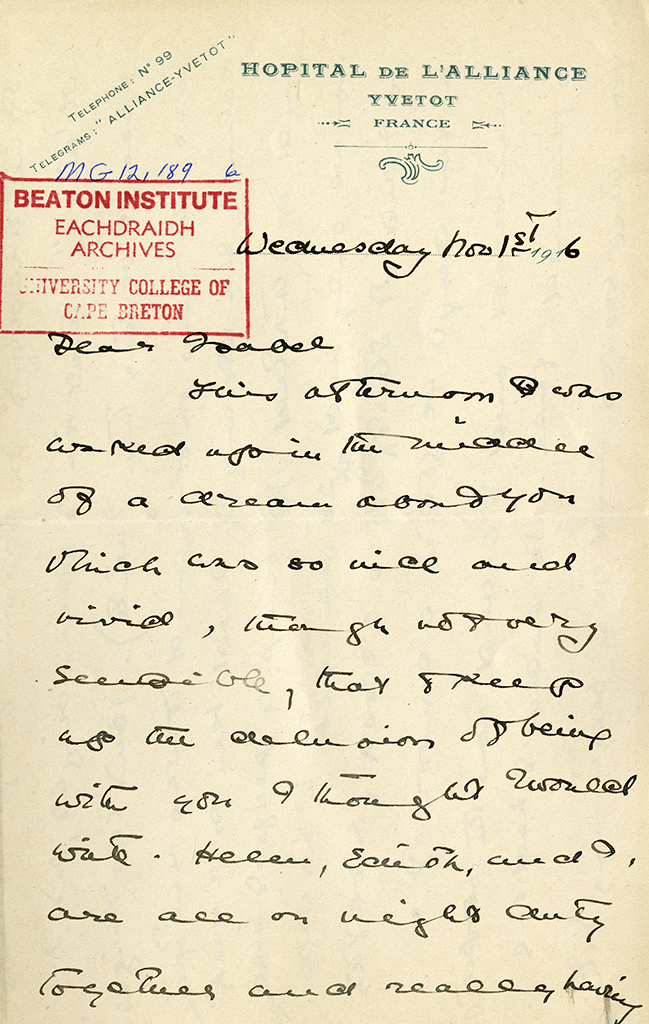 TELEPHONE: Nº 99
TELEGRAMS: "ALLIANCE-YVETOT"
HOPITAL DE L'ALLIANCE
YVETOT
FRANCE
MG 12, 189 6
BEATON INSTITUTE
EACHDRAIDH
ARCHIVES
UNIVERSITY COLLEGE OF
CAPE BRETON
Wednesday Nov 1st 1916
Dear Isabel
This afternoon I was
waked up in the middle
of a dream about you
which was so nice and
vivid, though not very
sensible, that to keep
up the delusion of being
with you I thought I would
write. Helen, Edith, and I,
are all on night duty
together and really having